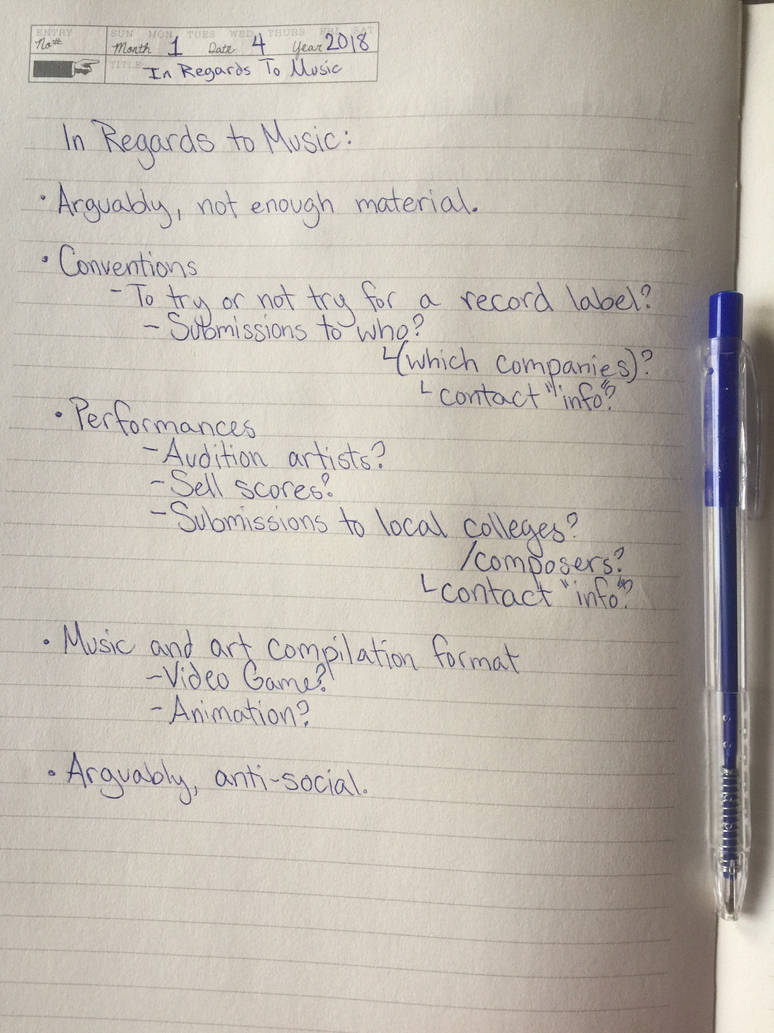 ENTRY
SUN MON TUES WED THURS FRI SAT
No#
Month 1 Date 4 Year 2018
TITLE: In Regards To Music
In Regards to Music:
• Arguably, not enough material.
• Conventions
- To try or not try for a record label?
- Submissions to who?
└(which companies)?
└ contact "info"?
• Performances
- Audition artists?
- Sell scores?
- Submissions to local colleges?
/composers?
└ contact "info"?
• Music and art compilation format
- Video Game?
- Animation?
• Arguably, anti-social.